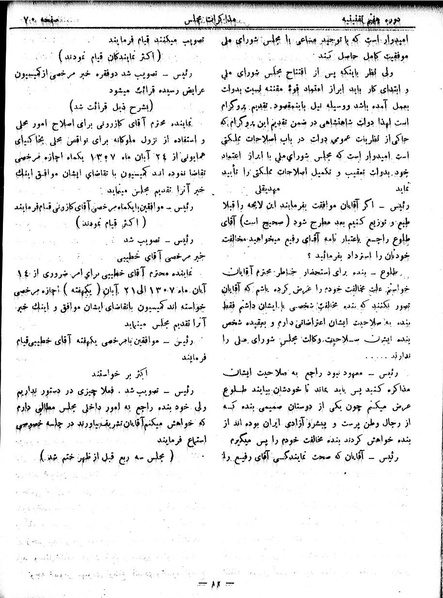 دوره هفتم تقنینیه
مذاکرات مجلس
صفحه ۷۰
امیدوار است که با توحید مساعی با مجلس شورای ملی
موفقیت کامل حاصل کند
ولی نظر باینکه پس از افتتاح مجلس شورای ملی
و ابتدای کار باید ابراز اعتماد قوه مقننه نسبت بدولت
بعمل آمده باشد ووسیله نیل باینمقصود تقدیم پروگرام
است لهذا دولت شاهنشاهی در ضمن تقدیم این پروگرام که
حاکی از نظریات عمومی دولت در باب اصلاحات مملکتی
است امیدوار است که مجلس شورای ملی با ابراز اعتماد
خود بدولت تعقیب و تکمیل اصلاحات مملکتی را تأیید
نماید مهدیقلی
رئیس ـ اگر آقایان موافقت بفرمایند این لایحه را قبلا
طبع و توزیع کنیم بعد مطرح شود (صحیح است) آقای
طلوع راجع باعتبار نامه آقای رفیع میخواهید مخالفت
خودتان را استرداد بفرمائید؟
طلوع ـ بنده برای استحضار خاطر محترم آقایان
خواستم علت مخالفت خودم را عرض کرده باشم که آقایان
تصور نکنند که بنده مخالفت شخصی با ایشان داشتم فقط
بنده به صلاحیت ایشان اعتراضاتی دارم و بعقیده شخص
بنده ایشان صلاحیت وکالت مجلس شورای ملی را
ندارند ...
رئیس ـ معهود نبود راجع به صلاحیت ایشان
مذاکره کنید پس باید بماند تا خودشان بیایند طلوع
عرض میکنم چون یکی از دوستان صمیمی بنده که
از رجال وطن پرست و پیشرو آزادی ایران بوده اند از
بنده خواهش کردند بنده مخالفت خودم را پس میگیرم
رئیس ـ آقایان که صحت نمایندگی آقای رفیع را
تصویب میکنند قیام فرمایند
(اکثر نمایندگان قیام نمودند)
رئیس ـ تصویب شد دوفقره خبر مرخصی ازکمیسیون
عرایض رسیده قرائت میشود
(بشرح ذیل قرائت شد)
نماینده محترم آقای کازرونی برای اصلاح امور محلی
و استفاده از نزول ملوکانه برای نواقص محلی بخاکپای
همایونی از ۲۴ آبان ماه ۱۳۰۷ یکماه اجازه مرخصی
تقاضا نموده اند کمیسیون با تقاضای ایشان موافق اینک
خبر آنرا تقدیم مجلس مینماید
رئیس ـ موافقین بایکماه مرخصی آقای کازرونی قیام فرمایند
(اکثر قیام نمودند)
رئیس ـ تصویب شد
خبر مرخصی آقای خطیبی
نماینده محترم آقای خطیبی برای امر ضروری از ۱۴
آبان ماه ۱۳۰۷ الی ۲۱ آبان (یکهفته) اجازه مرخصی
خواسته اند کمیسیون باتقاضای ایشان موافق و اینک خبر
آنرا تقدیم مجلس مینماید
رئیس ـ موافقین بامرخصی یکهفته آقای خطیبی قیام
فرمایند
اکثر بر خواستند
رئیس ـ تصویب شد. فعلا چیزی در دستور نداریم
ولی خود بنده راجع به امور داخلی مجلس مطالبی دارم
که خواهش میکنم آقایان تشریف بیاورند در جلسه خصوصی
استماع فرمایند
(مجلس سه ربع قبل از ظهر ختم شد)